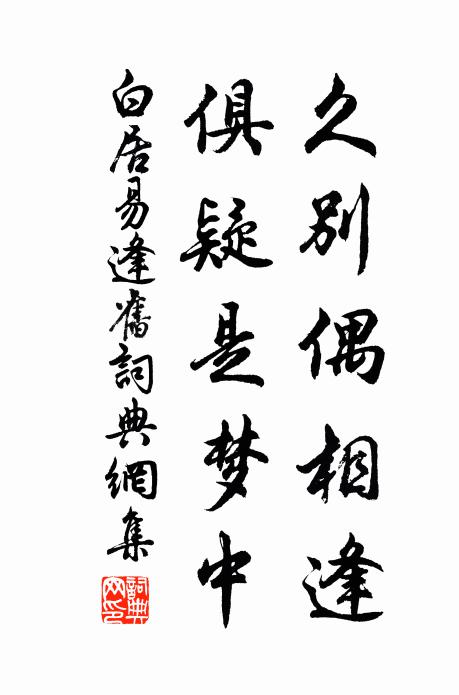 久别偶相逢
俱疑是梦中
白居易逢舊詞典網集
詞典网印